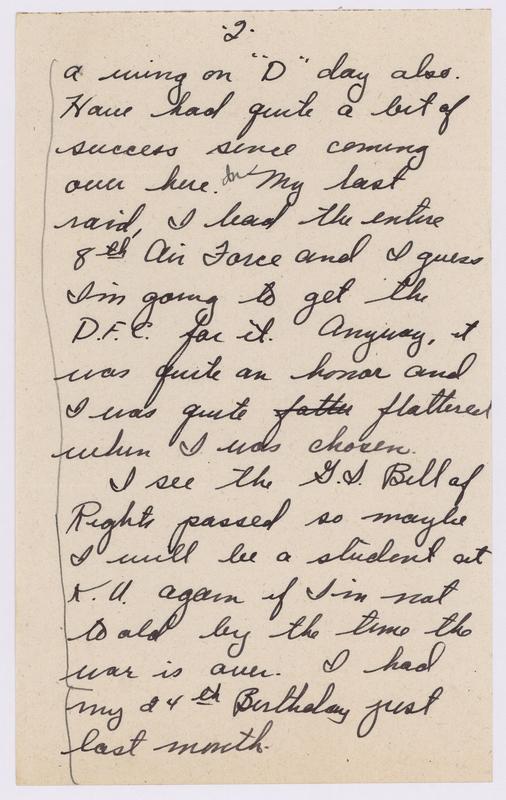 ·2·
a wing on "D" day also.
Have had quite a bit of
success since coming
over here. On My last
raid, I lead the entire
8th Air Force and I guess
I'm going to get the
D.F.C. for it. Anyway, it
was quite an honor and
I was quite flatter flattered
when I was chosen.
I see the G.I. Bill of
Rights passed so maybe
I will be a student at
K.U. again if I'm not
to old by the time the
war is over. I had
my 24th Birthday just
last month.